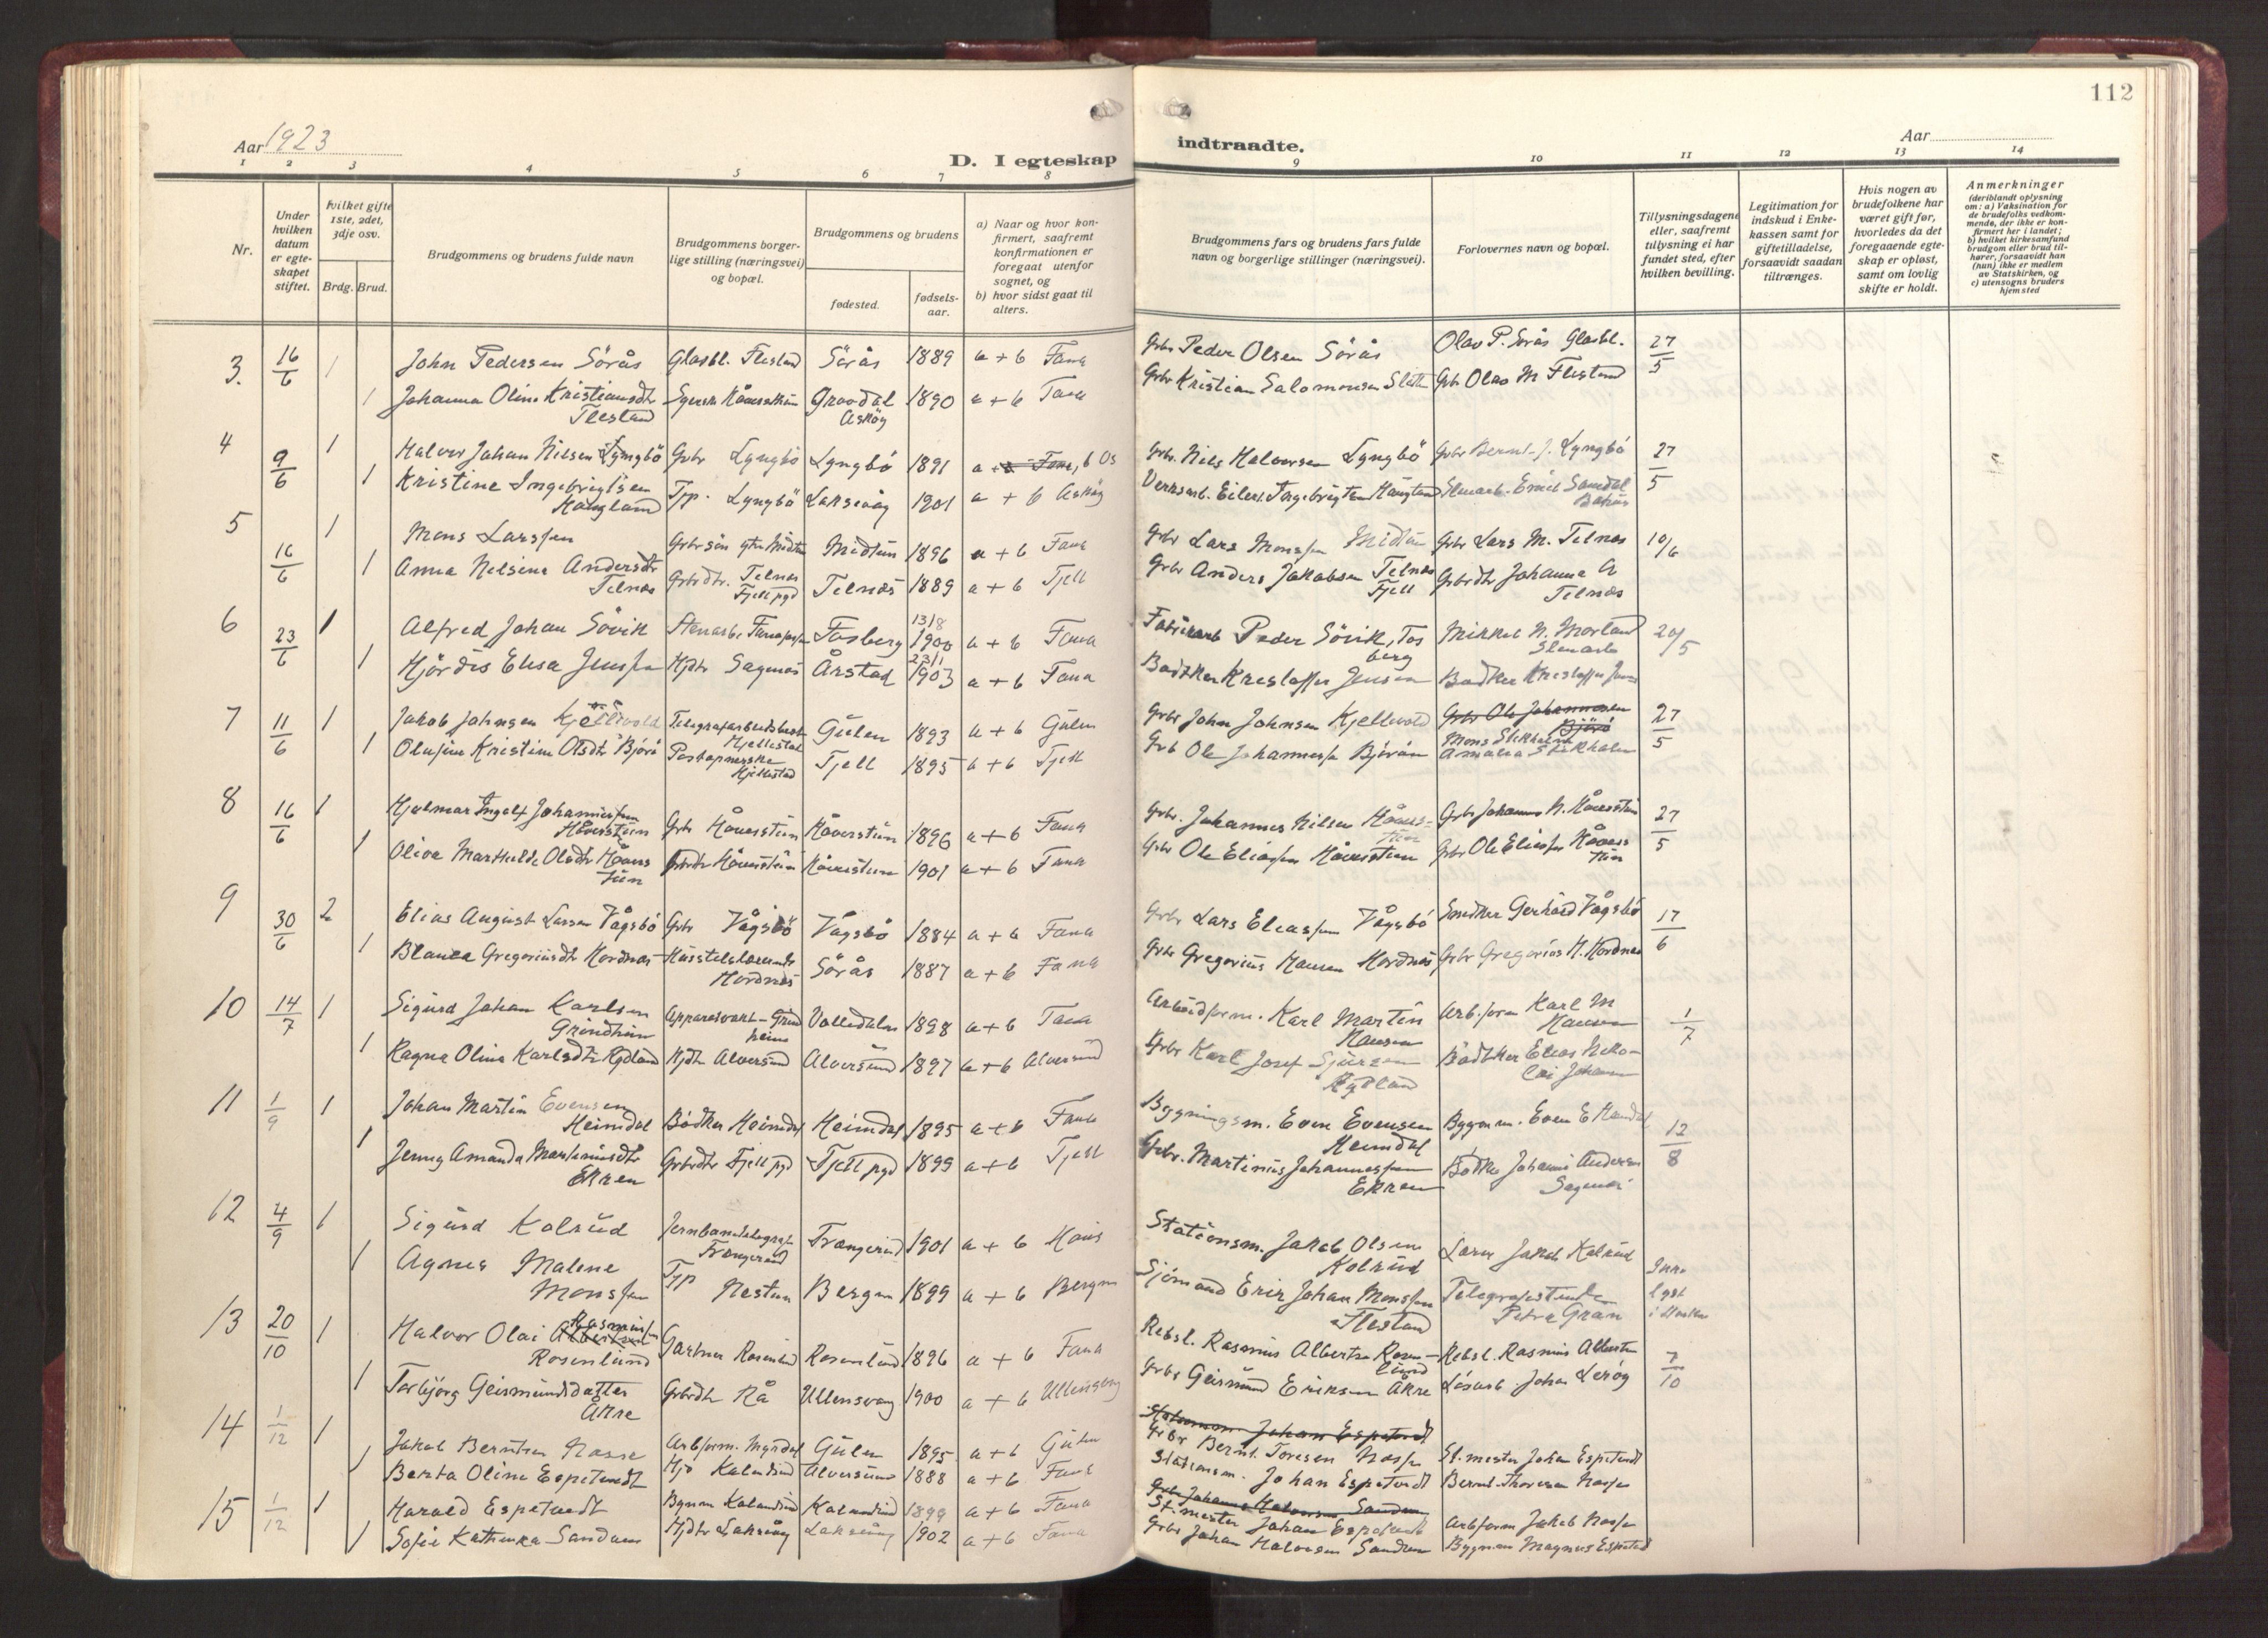 112
Aar 1923
D. I egteskap
indtraadte.
Aar
1 2 3 4 5 6 7 8 9 10 11 12 13 14
Nr.
Under hvilken datum er egteskapet stiftet.
Hvilket gifte 1ste, 2det, 3dje osv.
Brdg. Brud.
Brudgommens og brudens fulde navn
Brudgommens borgerlige stilling (næringsvei) og bopæl.
Brudgommens og brudens
fødested.
fødselsaar.
a) Naar og hvor konfirmert, saafremt konfirmationen er foregaat utenfor sognet, og
b) hvor sidst gaat til alters.
Brudgommens fars og brudens fars fulde navn og borgerlige stillinger (næringsvei).
Forlovernes navn og bopæl.
Tillysningsdagene eller, saafremt tillysning ei har fundet sted, efter hvilken bevilling.
Legitimation for indskud i Enkekassen samt for giftetilladelse, forsaavidt saadan tiltrænges.
Hvis nogen av brudefolkene har været gift før, hvorledes da det foregaaende egteskap er opløst, samt om lovlig skifte er holdt.
Anmerkninger
(deriblandt oplysning om: a) Vaksination for de brudefolks vedkommende, der ikke er konfirmert her i landet; b) hvilket kirkesamfund brudgom eller brud tilhører, forsaavidt han (hun) ikke er medlem av Statskirken, og c) utensogns bruders hjemsted
3. 16/6 1 John Pedersen Sörås Glasbl. Flestad Sörås 1889 a + b Fana Grbr Peder Olsen Sörås Olav P. Sörås Glasbl. 27/5
1 Johanna Oline Kristiansdtr Flestad Askøy 1890 a + b Fana Grbr Kristian Salomonsen Grbr Olav M Flestad
4 9/6 1 Halvor Johan Nilsen Lyngbö Grbr Lyngbö Lyngbö 1891 a + b Fana, b Os Grbr. Nils Halvorsen Lyngbö Grbr Bernt J. Lyngbö 27/5
1 Kristine Ingebrigtsen Haugland Tjp. Lyngbö Laksevåg 1901 a + b Askøy
5 16/6 1 Mons Larssen Midtun 1896 a + b Fana Grbr Lars Monssen Midtun Grbr Lars M. Telnes 10/6
1 Anna Nelsine Andersdtr Telnes Grbrdtr. Telnes Fjell pgd Telnes 1889 a + b Fjell Grbr Anders Jakobsen Telnes Fjell Grbrdtr Johanna A Telnes
6 23/6 1 Alfred Johan Sövik Fosberg 13/8 1900 a + b Fana Fabrikarb Peder Sövik, Fosberg Mikkel N. Morland Stenarb 20/5
1 Hjördis Elisa Jenssen Hjdtr Sagenes Årstad 23/1 1903 a + b Fana Bødker Kristoffer Jensen Bødker Kristoffer Jensen
7 11/6 1 Jakob Johnsen Kjellevold Hjellestad Gulen 1893 a + b Gulen Grbr John Johnsen Kjellevold Grbr Ole Johannessen Björö 27/5
1 Olufine Kristine Olsdtr Björö Hjellestad Fjell 1895 a + b Fjell Grb Ole Johannessen Mons Amalia
8 16/6 1 Hjalmar Ingolf Johannessen Håverstun Grbr Håverstun Håverstun 1896 a + b Fana Grbr. Johannes Nilsen Håverstun Grbr Johannes N. Håverstun 27/5
1 Oliva Mathilde Olsdtr Håverstun Grbrdtr Håverstun Håverstun 1901 a + b Fana Grbr Ole Eliassen Håverstun Grbr Ole Eliassen Håverstun
9 30/6 2 Elias August Larsen Vågsbö Grbr Vågsbö Vågsbö 1884 a + b Fana Grbr Lars Eliassen Vågsbö Snedker Gerhard Vågsbö 17/6
1 Blanca Gregoriusdtr Hordnes Hordnes Sörås 1887 a + b Fana Grbr Gregorius Hansen Hordnes Grbr Gregorius H. Hordnes
10 14/7 1 Sigurd Johan Karlsen Grindheim 1898 a + b Fana Arbeidform. Karl Martin Hansen Arb.form Karl M Hansen 1/7
1 Ragna Oline Karlsdtr Rydland Hjdtr Alversund Alversund 1897 a + b Alversund Grbr Karl Josef Sjursen Rydland Bødker Elias
11 1/9 1 Johan Martin Evensen Heimdal Bødker Heimdal Heimdal 1895 a + b Fana Bygningsm. Even Evensen Heimdal Bygnm. Even E Heimdal 12/8
1 Jenny Amanda Martinusdtr Ekren Grbrdtr Fjell pgd Fjell pgd 1899 a + b Fjell Grbr. Martinus Johannessen Ekren Bødker Johannes Andersen
12 4/9 1 Sigurd Kolrud Trengereid Trengereid 1901 a + b Haus Stationsm. Jakob Olsen Kolrud Jakob Kolrud
1 Agnes Malene Monssen Tjp Nestun Bergen 1899 a + b Bergen Sjömand Erik Johan Monssen Flestad Petra Gran
13 20/10 1 Halvor Olai Albertsen Rasmussen Rosenlund Gartner Rosenlund Rosenlund 1896 a + b Fana Rebsl. Rasmus Albertsen Rosenlund Rebsl. Rasmus Albertsen 7/10
1 Torbjörg Geirmundsdatter Åkre Grbrdtr Rå Ullensvang 1900 a + b Ullensvang Grbr Geirmund Eriksen Åkre Johan Leröy
14 1/12 1 Jakob Berntsen Nasse Arbform. Myrdal Gulen 1895 a + b Gulen Johan Espetvedt Grbr Bernt Toresen Nasse St.mester Johan Espetvedt
1 Berta Oline Espetvedt Kalandseid Alversund 1888 a + b Fana Stationsm. Johan Espetvedt Bernt Thoresen Nasse
15 1/12 1 Harald Espetvedt Bygnm Kalandseid Kalandseid 1899 a + b Fana St.mester Johan Espetvedt Arbform Jakob Nasse
1 Sofie Kathinka Sandven Hjdtr Laksevåg Laksevåg 1902 a + b Fana Grbr Johan Halvorsen Sandven Bygnm Magnus Espetvedt